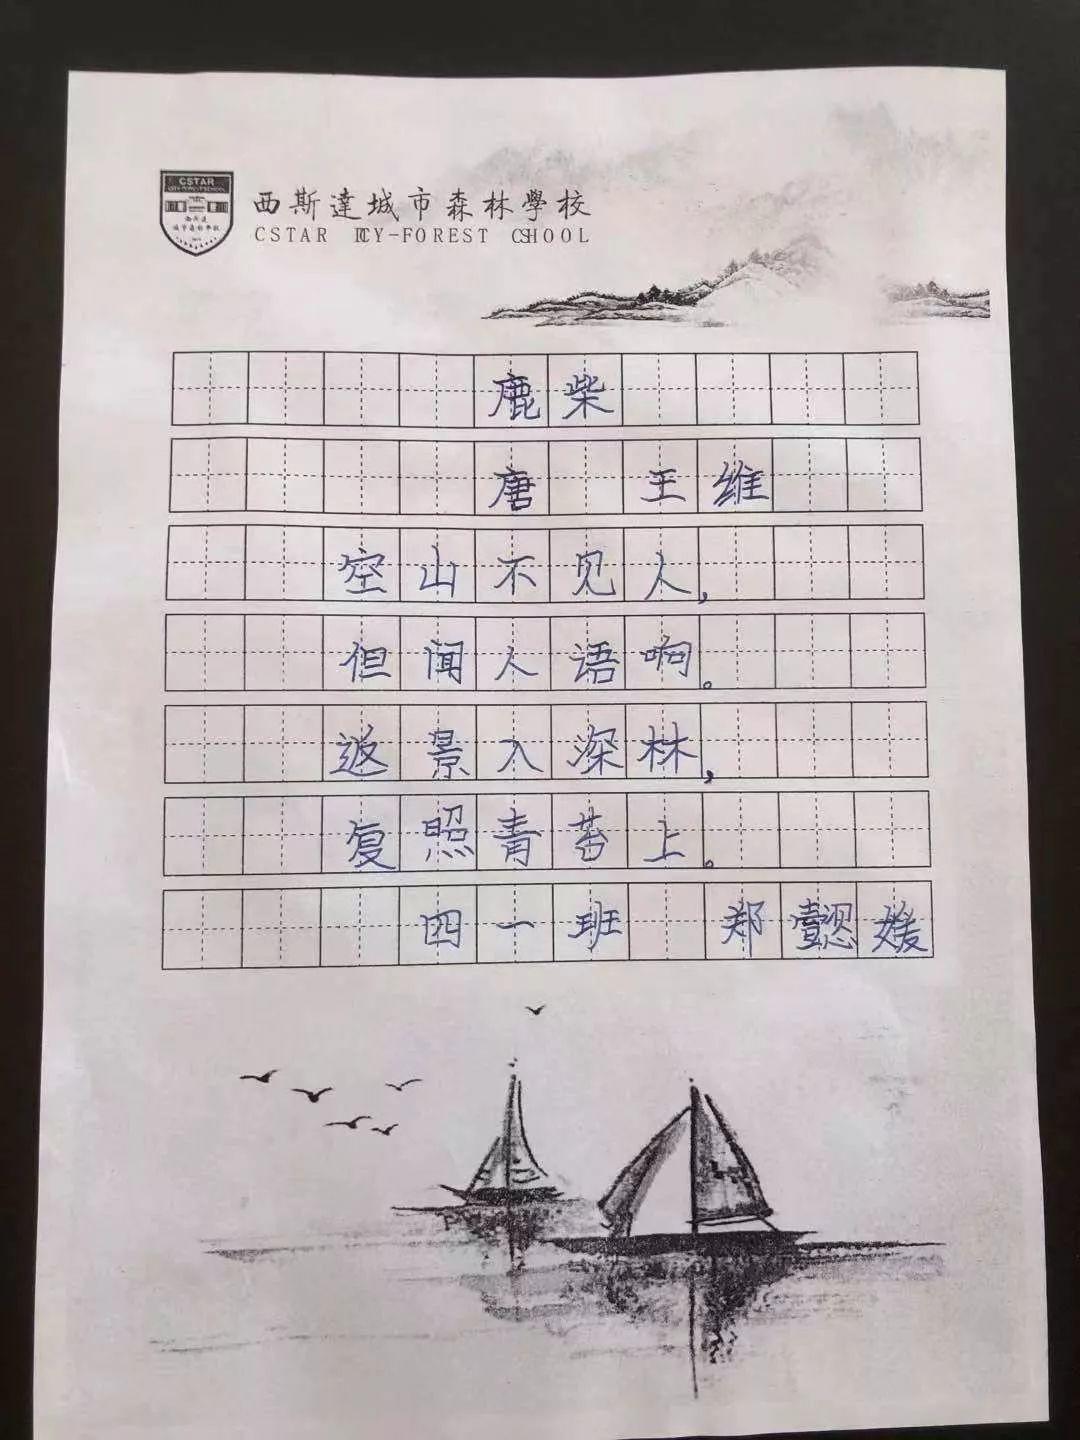 CSTAR
西斯達城市森林學校
CSTAR ICY-FOREST CSHOOL
鹿柴
唐 王维
空山不见人，
但闻人语啊。
返景入深林，
复照青苔上。
四一班 郑懿媛